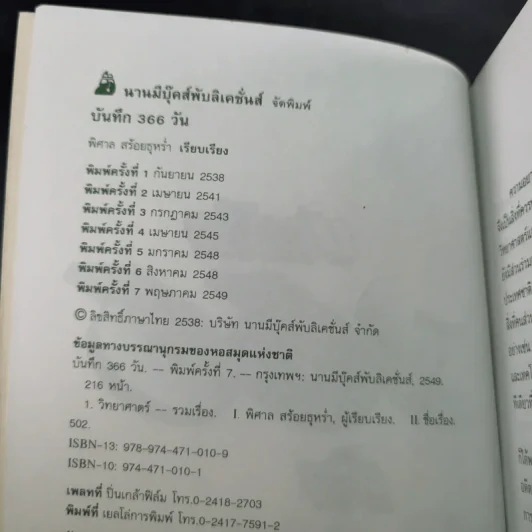 นานมีบุ๊คส์พับลิเคชั่นส์ จัดพิมพ์
บันทึก 366 วัน
พิศาล สร้อยธุหร่ำ เรียบเรียง
พิมพ์ครั้งที่ 1 กันยายน 2538
พิมพ์ครั้งที่ 2 เมษายน 2541
พิมพ์ครั้งที่ 3 กรกฎาคม 2543
พิมพ์ครั้งที่ 4 เมษายน 2545
พิมพ์ครั้งที่ 5 มกราคม 2548
พิมพ์ครั้งที่ 6 สิงหาคม 2548
พิมพ์ครั้งที่ 7 พฤษภาคม 2549
© ลิขสิทธิ์ภาษาไทย 2538: บริษัท นานมีบุ๊คส์พับลิเคชั่นส์ จำกัด
ข้อมูลทางบรรณานุกรมของหอสมุดแห่งชาติ
บันทึก 366 วัน. — พิมพ์ครั้งที่ 7. — กรุงเทพฯ: นานมีบุ๊คส์พับลิเคชั่นส์, 2549.
216 หน้า.
1. วิทยาศาตร์ — รวมเรื่อง. I. พิศาล สร้อยธุหร่ำ, ผู้เรียบเรียง. II. ชื่อเรื่อง.
502.
ISBN-13: 978-974-471-010-9
ISBN-10: 974-471-010-1
เพลทที่ ปิ่นเกล้าฟิล์ม โทร.0-2418-2703
พิมพ์ที่ เยลโล่การพิมพ์ โทร.0-2417-7591-2